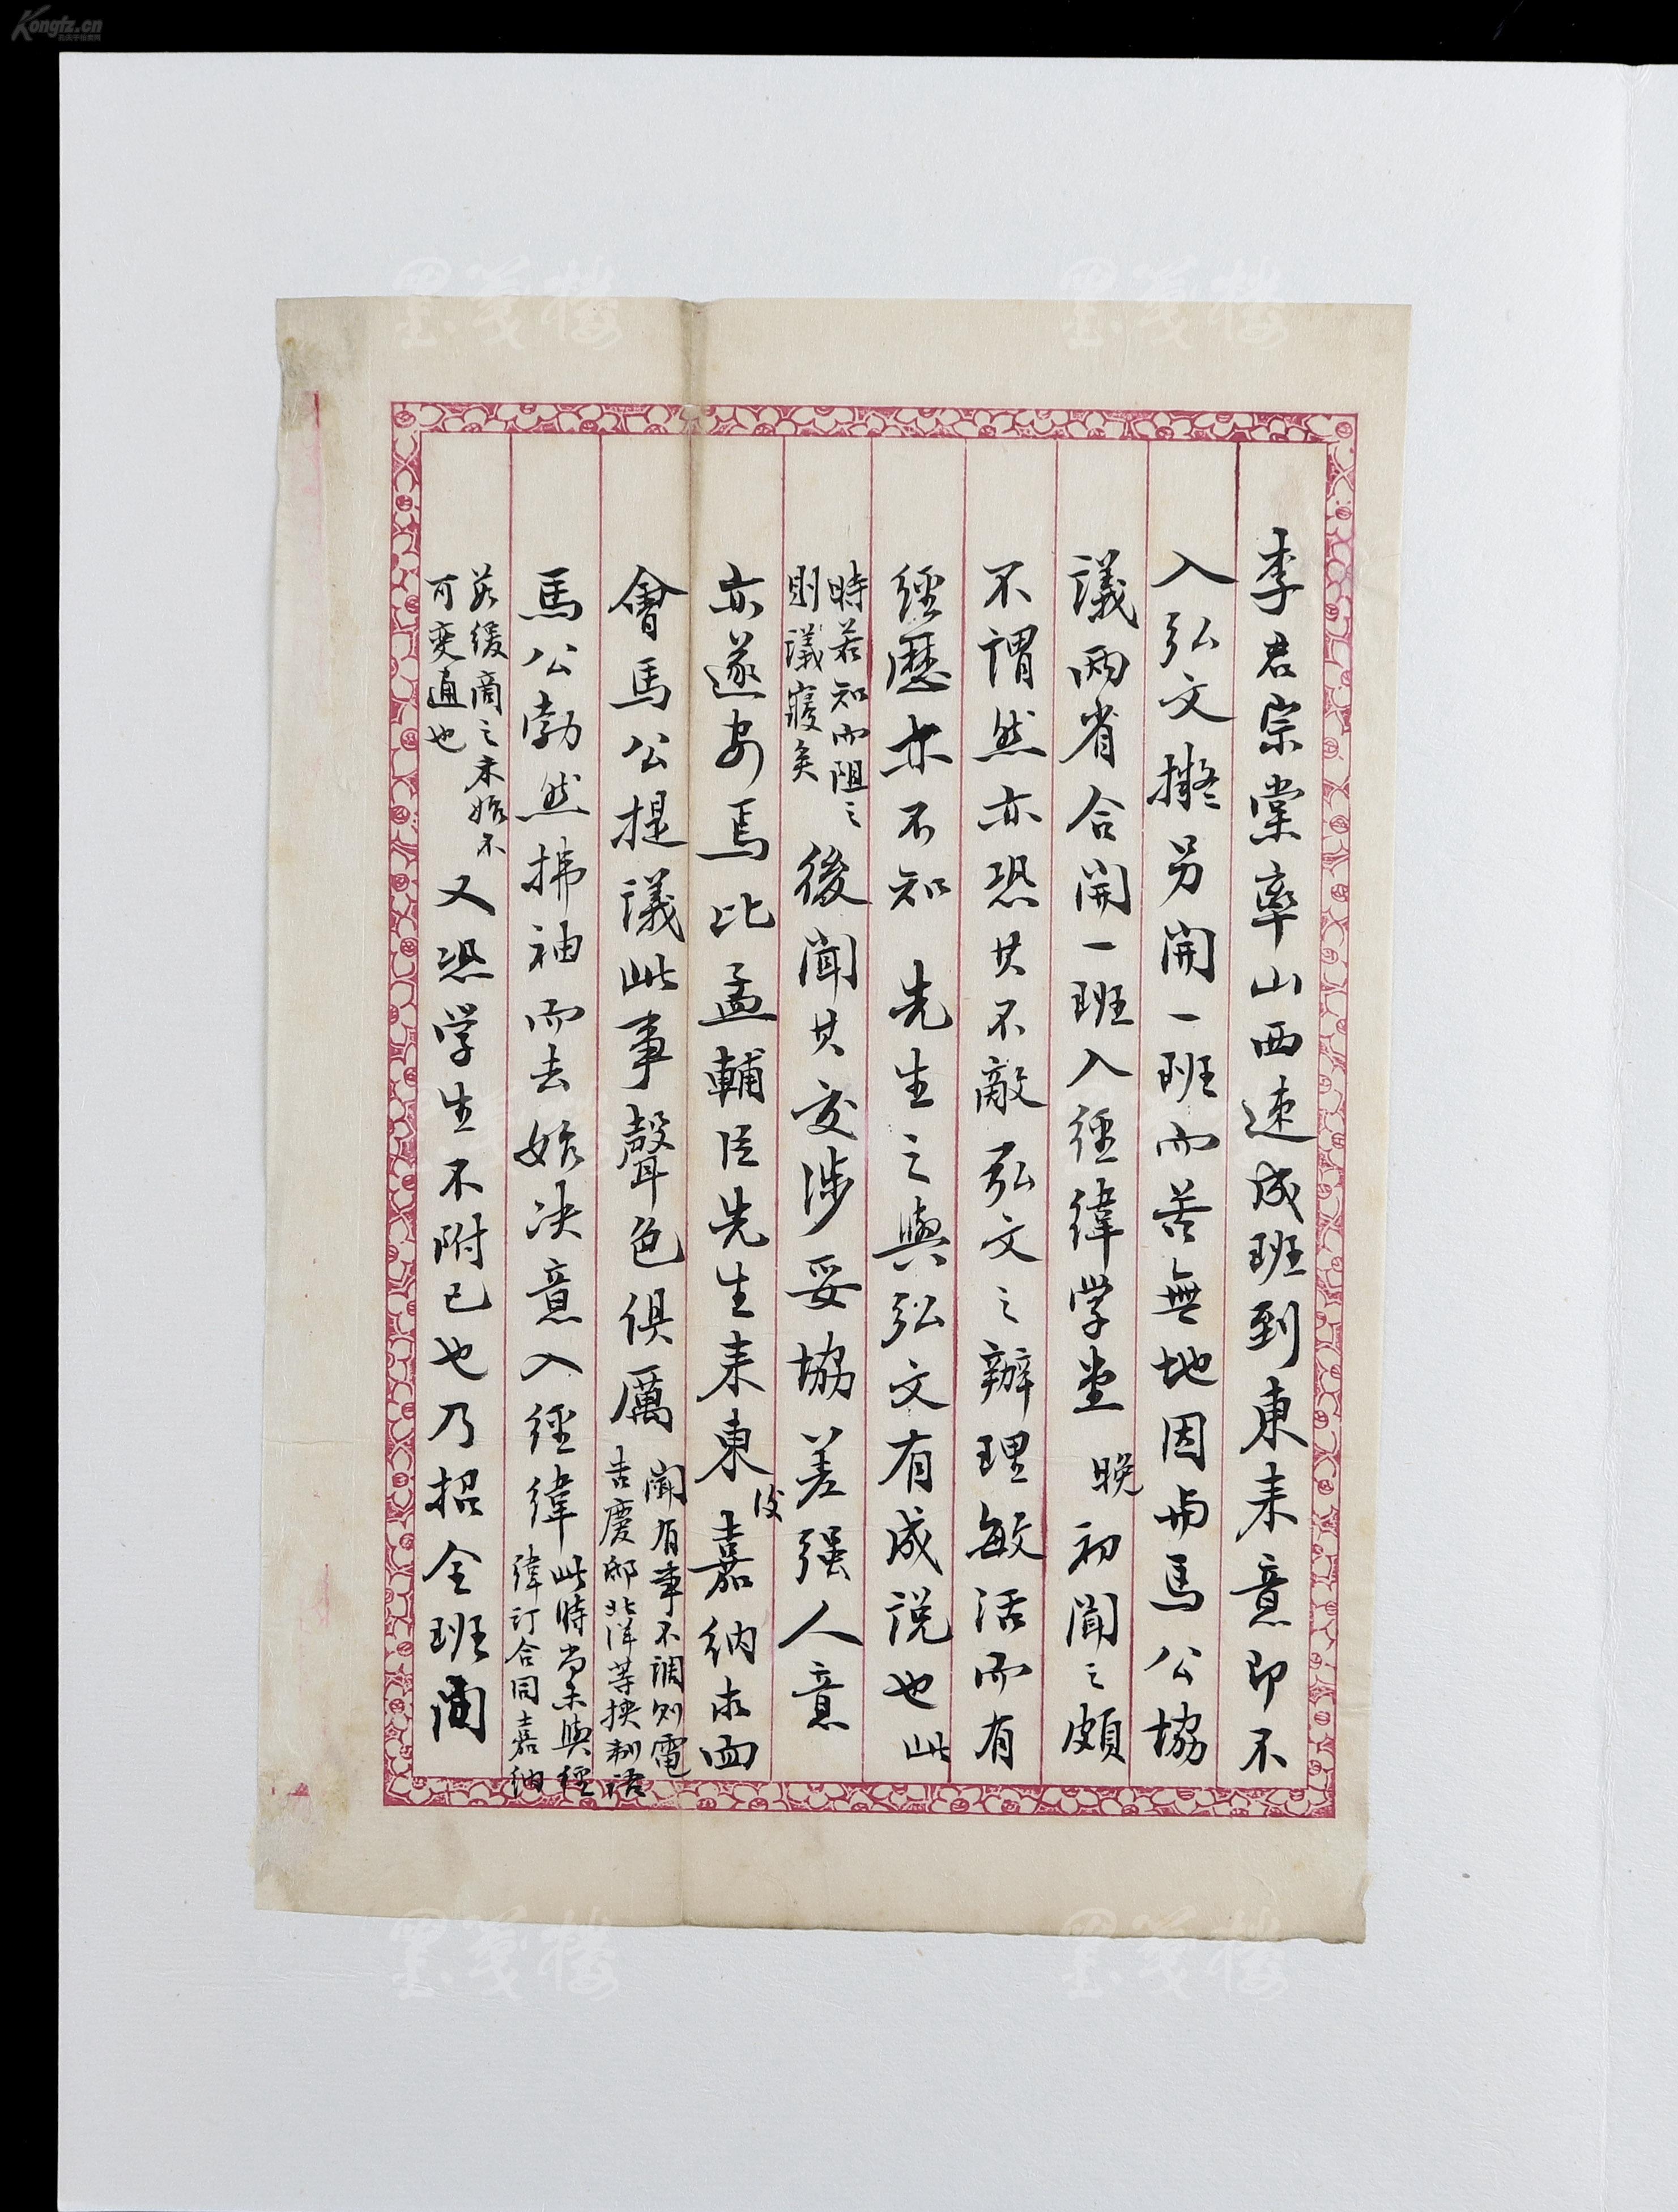 李君宗棠率山西速成班到東来意即不
入弘文擬另開一班而苦無地因與馬公協
議兩省合開一班入經緯学堂晚初聞之頗
不謂然亦恐其不敵弘文之辦理敏活而有
經歷亦不知先生之與弘文有成説也此
時若知而阻之
則議寢矣
後聞其交涉妥協差强人意
亦遂安焉比孟輔臣先生来東後嘉納求面
會馬公提議此事聲色俱厲
聞有事不調則電
告慶邸北洋等挾制語
馬公勃然拂袖而去始决意入經緯
此時尚未與經
緯訂合同嘉納
若緩商之未始不
可变通也
又恐学生不附己也乃招全班開
Kongfz.cn
墨笺楼
墨笺楼
墨笺楼
墨笺楼